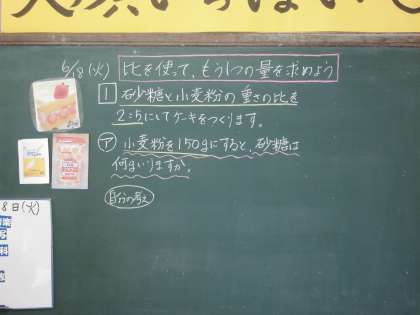 6/18(火) 比を使って、もう1つの量を求めよう
1 砂糖と小麦粉の重さの比を
2:5にしてケーキをつくります。
ア 小麦粉を150gにすると、砂糖は
何gいりますか。
自分の考え
8日(火)